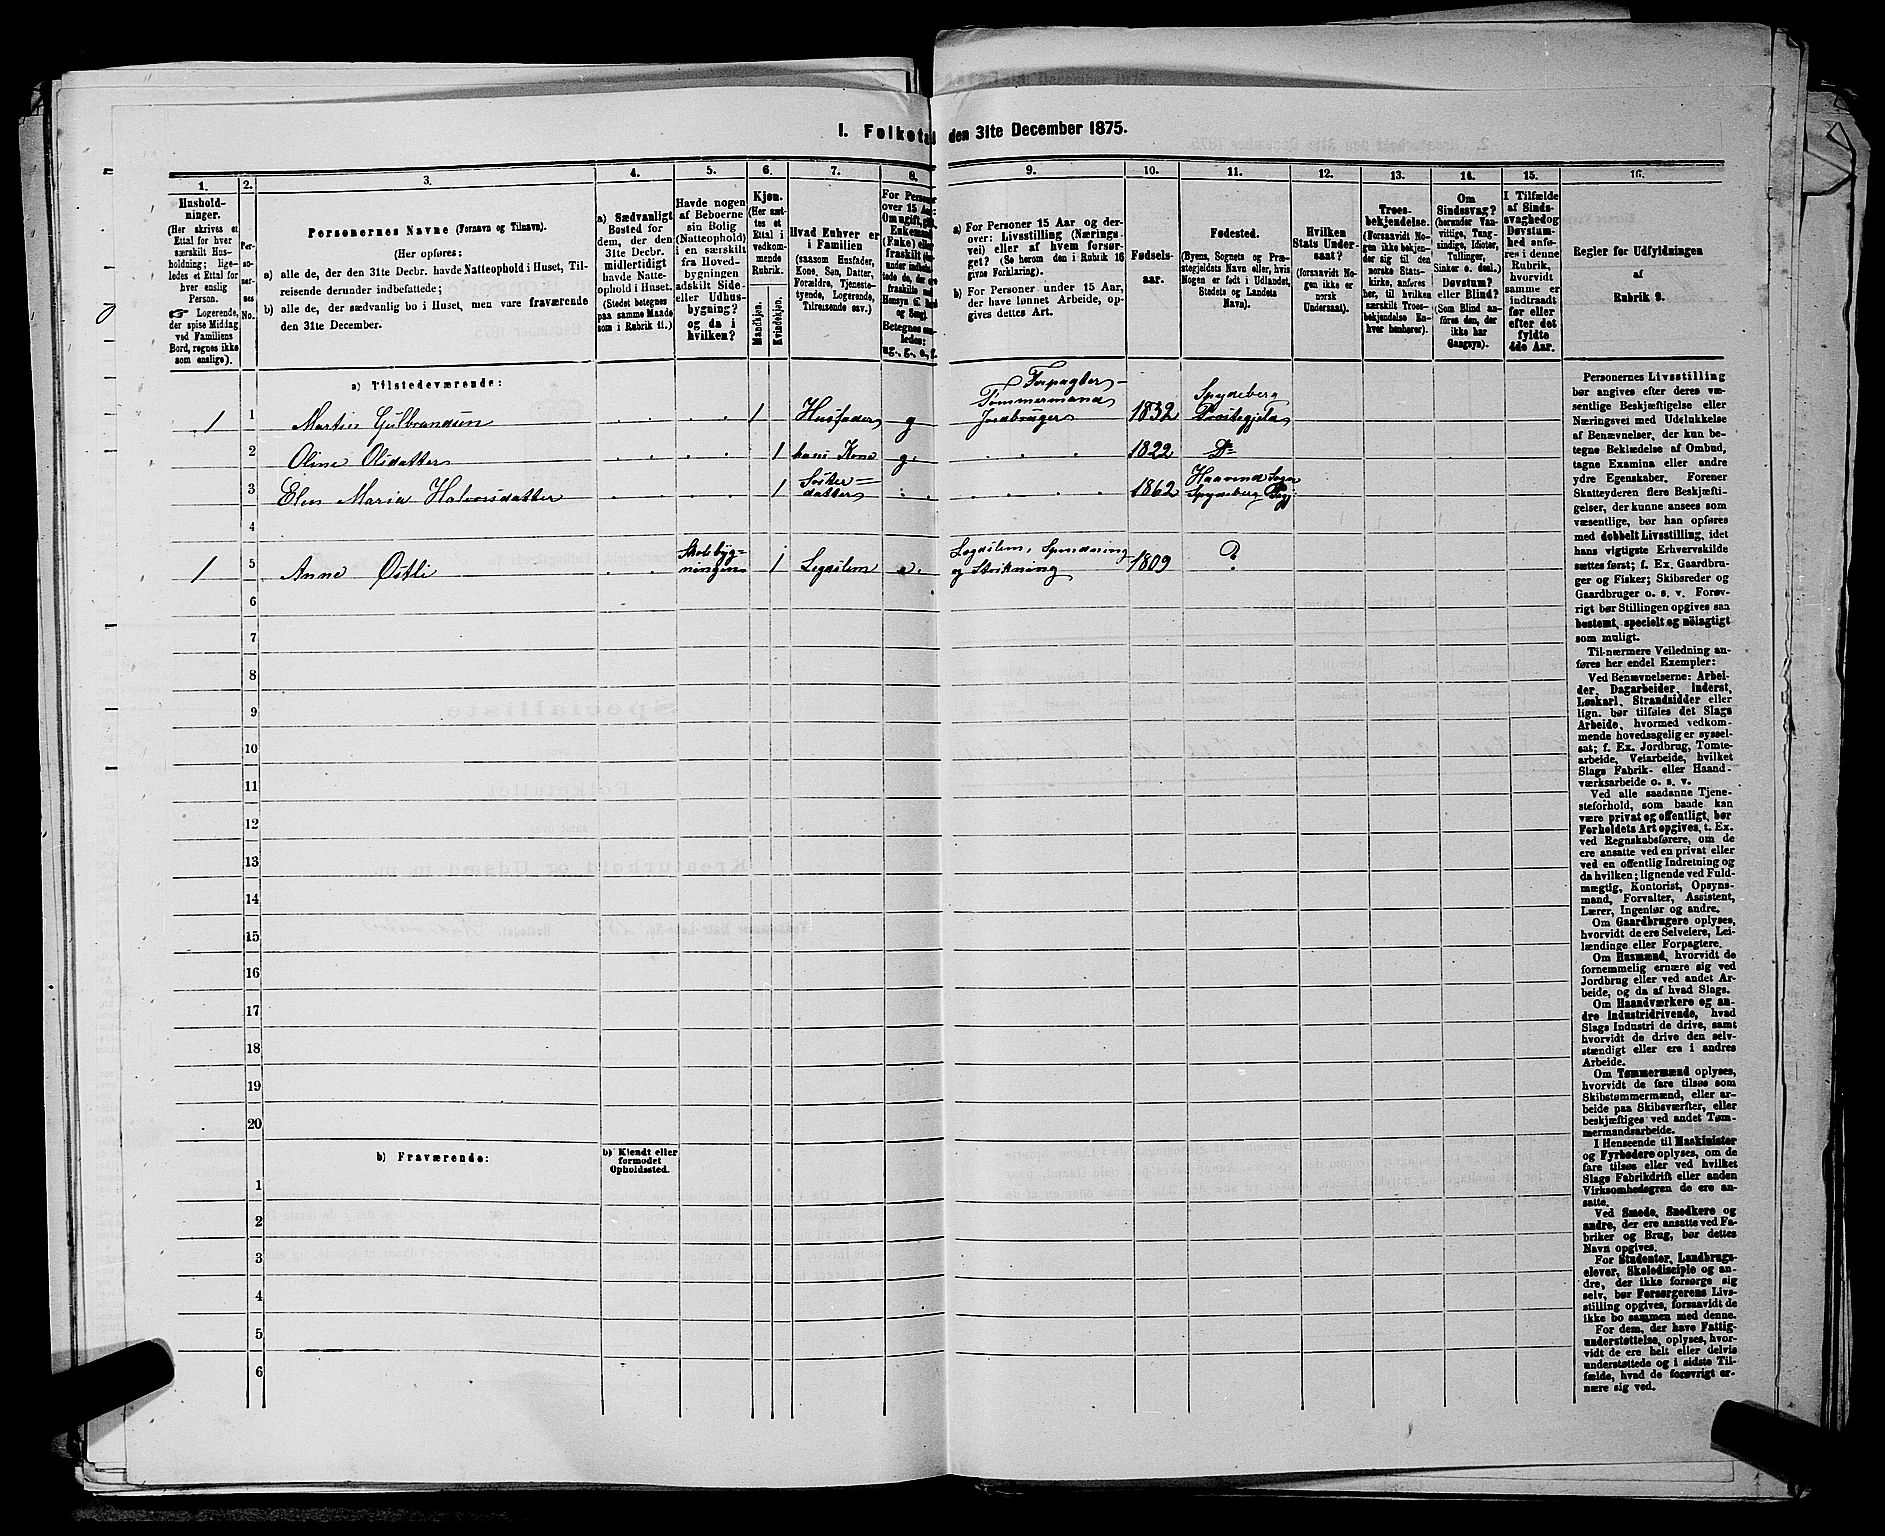 I. Folketal den 31te December 1875.
1. 2. 3. 4. 5. 6. 7. 8. 9. 10. 11. 12. 13. 14. 15. 16.
Hushold-
ninger.
(Her skrives et
Ettal for hver
særskilt Hus-
holdning; lige-
ledes et Ettal for
hver enslig
Person.
Logerende,
der spise Middag
ved Familiens
Bord, regnes ikke
som enslige).
Per-
so-
ner-
nes
No.
Personernes Navne (Fornavn og Tilnavn).
(Her opføres:
a) alle de, der den 31te Decbr. havde Natteophold i Huset, Til-
reisende derunder indbefattede;
b) alle de, der sædvanlig bo i Huset, men vare fraværende
den 31te December.
a) Sædvanligt
Bosted for
dem, der den
31te Decbr.
midlertidigt
havde Natte-
ophold i Huset.
(Stedet betegnes
paa samme Maade
som i Rubrik 11.)
Havde nogen
af Beboerne
sin Bolig
(Natteophold)
i en særskilt
fra Hoved-
bygningen
adskilt Side-
eller Udhus-
bygning?
og da i
hvilken?
Kjøn.
(Her sæt-
tes et
Ettal i
vedkom-
mende
Rubrik.
Mandkjøn.
Kvindekjøn.
Hvad Enhver er
i Familien
(saasom Husfader,
Kone, Søn, Datter,
Forældre, Tjeneste-
tyende, Logerende,
Tilreisende osv.)
For Personer
over 15 Aar:
Om ugift, gift,
Enkemand
(Enke) eller
fraskilt
og Seng).
Betegnes saa-
ledes:
ug., g., e., f.
a) For Personer 15 Aar og der-
over: Livsstilling (Nærings-
vei) eller af hvem forsør-
get? (Se herom den i Rubrik 16
givne Forklaring).
b) For Personer under 15 Aar,
der have lønnet Arbeide, op-
gives dettes Art.
Fødsels-
aar.
Fødested.
(Byens, Sognets og Præ-
stegjeldets Navn eller, hvis
Nogen er født i Udlandet,
Stedets og Landets
Navn).
Hvilken
Stats Under-
saat?
(forsaavidt No-
gen ikke er
norsk
Undersaat).
Troes-
bekjendelse.
(Forsaavidt No-
gen ikke bekjen-
der sig til den
norske Stats-
kirke, anføres
her, til hvilken
særskilt Troes-
bekjendelse En-
hver henhører).
Om
Sindssvag?
(herunder Van-
vittige, Tung-
sindige, Idioter,
Tullinger,
Sinker o. desl.)
Døvstum?
eller Blind?
(Som Blind an-
føres den, der
ikke har
Gangsyn).
I Tilfælde
af Sinds-
svaghed og
Døvstum-
hed anfø-
res i denne
Rubrik,
hvorvidt
samme er
indtraadt
før eller
efter det
fyldte
4de Aar.
Regler for Udfyldningen
af
Rubrik 9.
a) Tilstedeværende:
1 1 Martin Gulbrandsen 1 Husfader g Forpagter - Tømmermand Jordbruger 1832 Spydeberg Præstegjeld
2 Oline Olsdatter 1 hans Kone g. 1822 Do
3 Elen Maria Halvorsdatter 1 Søster= datter 1862 Haavind Sogn Spydeberg Pgj.
4
1 5 Anne Østli Skolebyg= ningen 1 Legdslem e. Legdslem, Spinding og Strikning 1809 ?
6
7
8
9
10
11
12
13
14
15
16
17
18
19
20
b) Fraværende:
b) Kjendt eller
formodet
Opholdssted.
1
2
3
4
5
6
Personernes Livsstilling
bør angives efter deres væ-
sentlige Beskjæftigelse eller
Næringsvei med Udelukkelse
af Benævnelser, der kun be-
tegne Beklædelse af Ombud,
tagne Examina eller andre
ydre Egenskaber. Forener
Skatteyderen flere Beskjæfti-
gelser, der kunne ansees som
væsentlige, bør han opføres
med dobbelt Livsstilling, idet
hans vigtigste Erhvervskilde
sættes først; f. Ex. Gaardbru-
ger og Fisker; Skibsreder og
Gaardbruger o. s. v. Forøv-
rigt bør Stillingen opgives saa
bestemt, specielt og nøiagtigt
som muligt.
Til nærmere Veiledning an-
føres her endel Exempler:
Ved Benævnelserne: Arbei-
der, Dagarbeider, Inderst,
Løskarl, Strandsidder eller
lign. bør tilføies det Slags
Arbeide, hvormed vedkom-
mende hovedsagelig er syssel-
sat; f. Ex. Jordbrug, Tomte-
arbeide, Veiarbeide, hvilket
Slags Fabrik- eller Haand-
værksarbeide o. s. v.
Ved alle saadanne Tjene-
steforhold, som baade kan
være privat og offentligt, bør
Forholdets Art opgives, t. Ex.
ved Regnskabsførere, om de
ere ansatte ved en privat eller
ved en offentlig Indretning og
da hvilken; lignende ved Fuld-
mægtig, Kontorist, Opsyns-
mand, Forvalter, Assistent,
Lærer, Ingeniør og andre.
Om Gaardbrugere oplyses,
hvorvidt de ere Selveiere, Lei-
lændinge eller Forpagtere.
Om Husmænd, hvorvidt de
fornemmelig ernære sig ved
Jordbrug eller ved andet Ar-
beide, og da af hvad Slags.
Om Haandværkere og an-
dre Industridrivende, hvad
Slags Industri de drive, samt
hvorvidt de drive den selv-
stændigt eller ere i andres
Arbeide.
Om Tømmermænd oplyses,
hvorvidt de fare tilsøs som
Skibstømmermænd, eller ar-
beide paa Skibsværfter, eller
beskjæftiges ved andet Tøm-
mermandsarbeide.
I Henseende til Maskinister
og Fyrbødere oplyses, om de
fare tilsøs eller ved hvilket
Slags Fabrikdrift eller anden
Virksomhedsgren de ere an-
satte.
Ved Smede, Snedkere og
andre, der ere ansatte ved Fa-
briker og Brug, bør dettes
Navn opgives.
For Studenter, Landbrugs-
elever, Skoledisciple og an-
dre, der ikke forsørge sig
selv, bør Forsørgerens Livs-
stilling opgives, forsaavidt de
ikke bo sammen med denne.
For dem, der have Fattig-
understøttelse, oplyses, hvor-
vidt de ere helt eller delvis
understøttede og i sidste Til-
fælde, hvad de forøvrigt er-
nære sig ved.